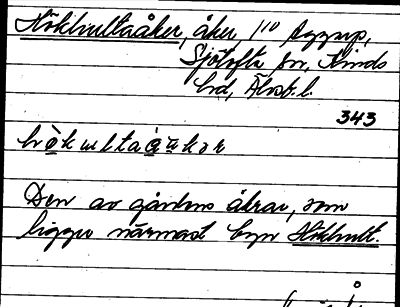 Hökhultaåker, åker 1/10 Aggarp,
Sjötofta sn, Kinds
hd, Älvsb. l.
343
hökultaåkər
Den av gårdens åkrar, som
ligger närmast byn Hökhult.